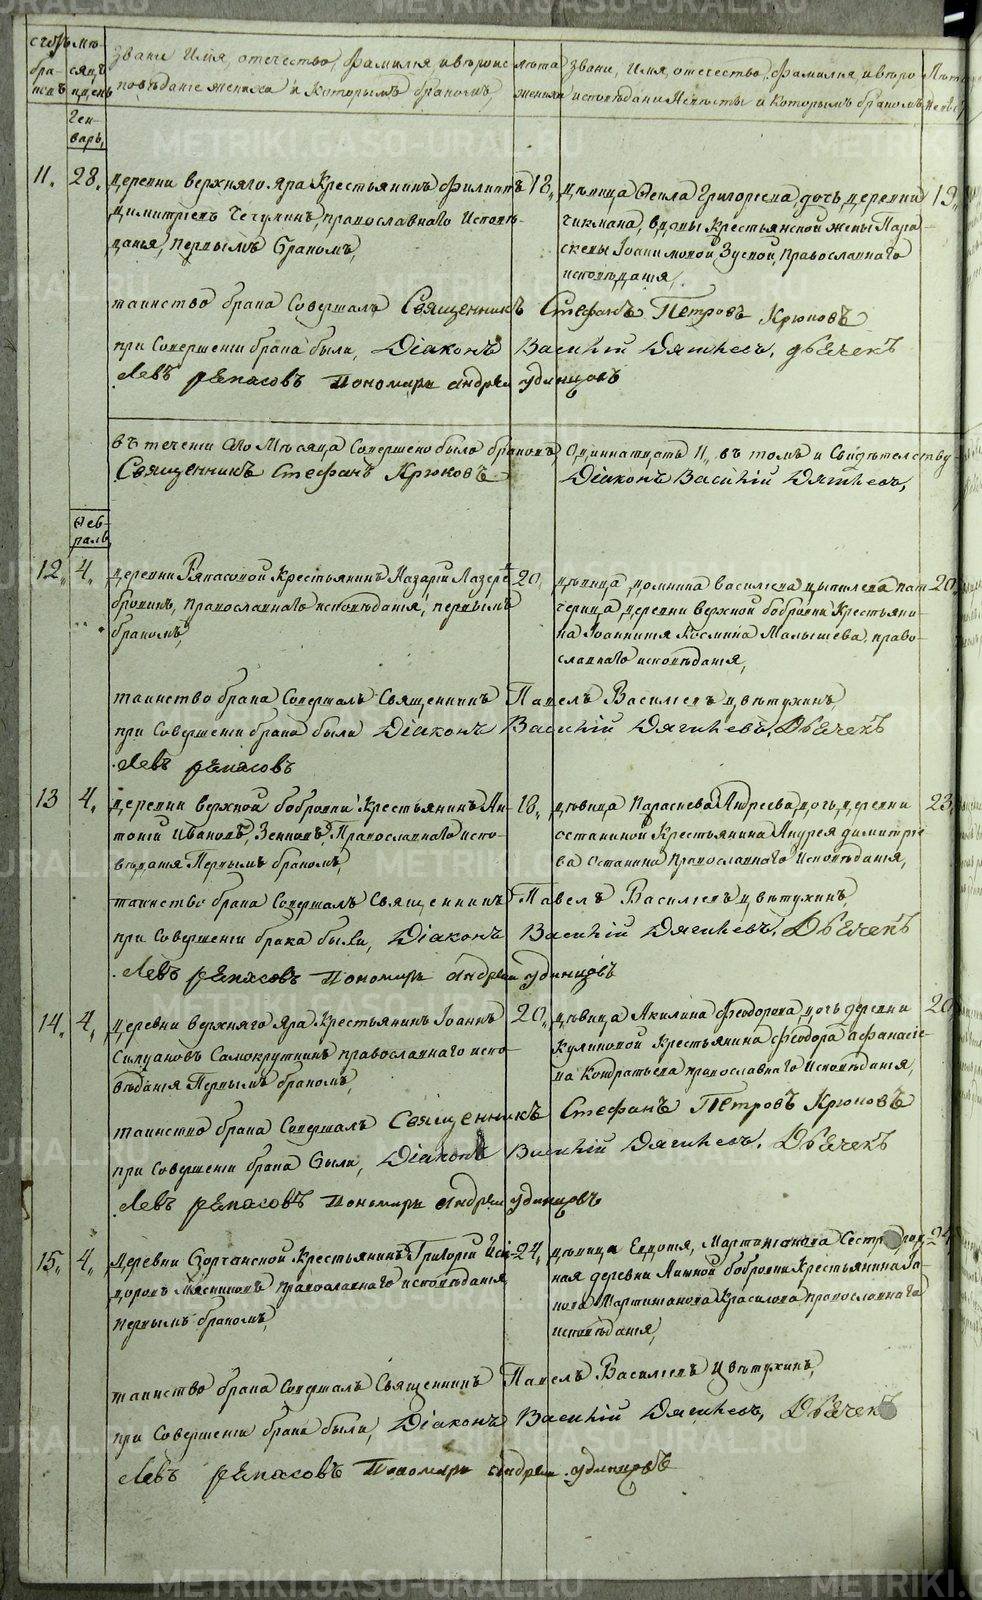 счотъ бра-
ковъ
мѣ-
сяцъ
и день
Звание Имя, отечество, фамилия и вероис
поведание жениха и которымъ бракомъ,
лѣта
жениха
Звание, Имя, отечество, фамилия и веро
исповедание Невесты и которымъ бракомъ,
Лѣта
Ген-
варь,
11. 28, деревни верхняго Яра Крестьянинъ Филиппъ 18,
Димитріевъ Чечулинъ, православнаго Исповѣ-
данія, первымъ бракомъ,
дѣвица Ѳекла Григорьева, дочь деревни 19,
Чикмана, вдовы Крестьянской жены Пара-
скевы Іоакимовой Зуевой, православнаго
исповѣданія,
таинство брака Совершалъ Священникъ Стефанъ Петровъ Крюковъ
при Совершении брака были, Діаконъ Василій Дягилевъ, дьячекъ
Левъ Рѣпасовъ Пономарь Андрей Удинцовъ
въ течении сего Мѣсяца Совершено было браковъ, Одиннатцать 11, въ томъ и Свидѣтелству-
Священникъ Стефанъ Крюковъ
Діаконъ Василій Дягилевъ,
Фев-
раль,
12, 4, деревни Крестьянинъ Назарій Лазаре 20,
бровинъ, православнаго исповѣданія, первымъ
бракомъ,
дѣвица Домника Василиева пат- 20
черица деревни Верхной бобровки Крестьяни-
на Малышева, право-
славнаго исповѣданія,
таинство брака Совершалъ Священникъ Павелъ Василиевъ Цвѣтухинъ,
при Совершении брака были Діаконъ Василій Дягилевъ, Дьячекъ
Левъ Рѣпасовъ
13 4, деревни верхной бобровки Крестьянинъ Ан- 18,
тоній Ивановъ, Зенковъ, Православнаго испо-
вѣданія Первымъ бракомъ,
дѣвица Параскева Андреева, дочь деревни 23,
останиной Крестьянина Андрея димитріе-
ва Останина православнаго Исповѣданія,
таинство брака Совершалъ Священникъ Павелъ Василиевъ Цвѣтухинъ,
при Совершении брака были, Діаконъ Василій Дягилевъ, Дьячекъ
Левъ Рѣпасовъ Пономарь Андрей Удинцовъ
14, 4, Деревни верхняго Яра Крестьянинъ Іоаннъ 20,
Силуановъ Самокруткинъ православнаго испо-
вѣданія Первымъ бракомъ,
дѣвица Акилина Феодорова, дочь деревни 20
Куликовой Крестьянина Феодора афанасіе-
ва Кондратьева православнаго Исповѣданія,
таинство брака Совершалъ Священникъ Стефанъ Петровъ Крюковъ
при Совершении брака были, Діаконъ Василій Дягилевъ, Дьячекъ
Левъ Рѣпасовъ Пономарь Андрей Удинцовъ
15, 4, Деревни Крестьянинъ Григорій Иси- 24,
доровъ Мясниковъ православнаго исповѣданія
первымъ бракомъ,
дѣвица Евдокія, Мартиніанова Сестра род- 24
ная деревни Нижной бобровки Крестьянина Іа-
кова Мартиніанова Красилова православнаго
исповѣданія,
таинство брака Совершалъ Священникъ Павелъ Василиевъ Цвѣтухинъ,
при Совершении брака были, Діаконъ Василій Дягилевъ, Дьячекъ
Левъ Рѣпасовъ Пономарь Андрей Удинцовъ
METRIKI.GASO-URAL.RU